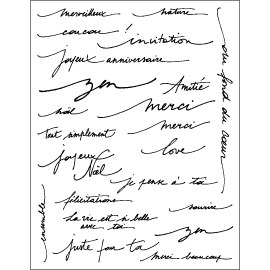 merveilleux
nature
coucou !
invitation
joyeux anniversaire
au fond du cœur
zen
Amitié
noël
merci
Tout simplement
merci
joyeux
Noël
love
je pense à toi
félicitations
sourire
La vie est si belle
avec toi
ensemble
zen
juste pour toi
merci beaucoup